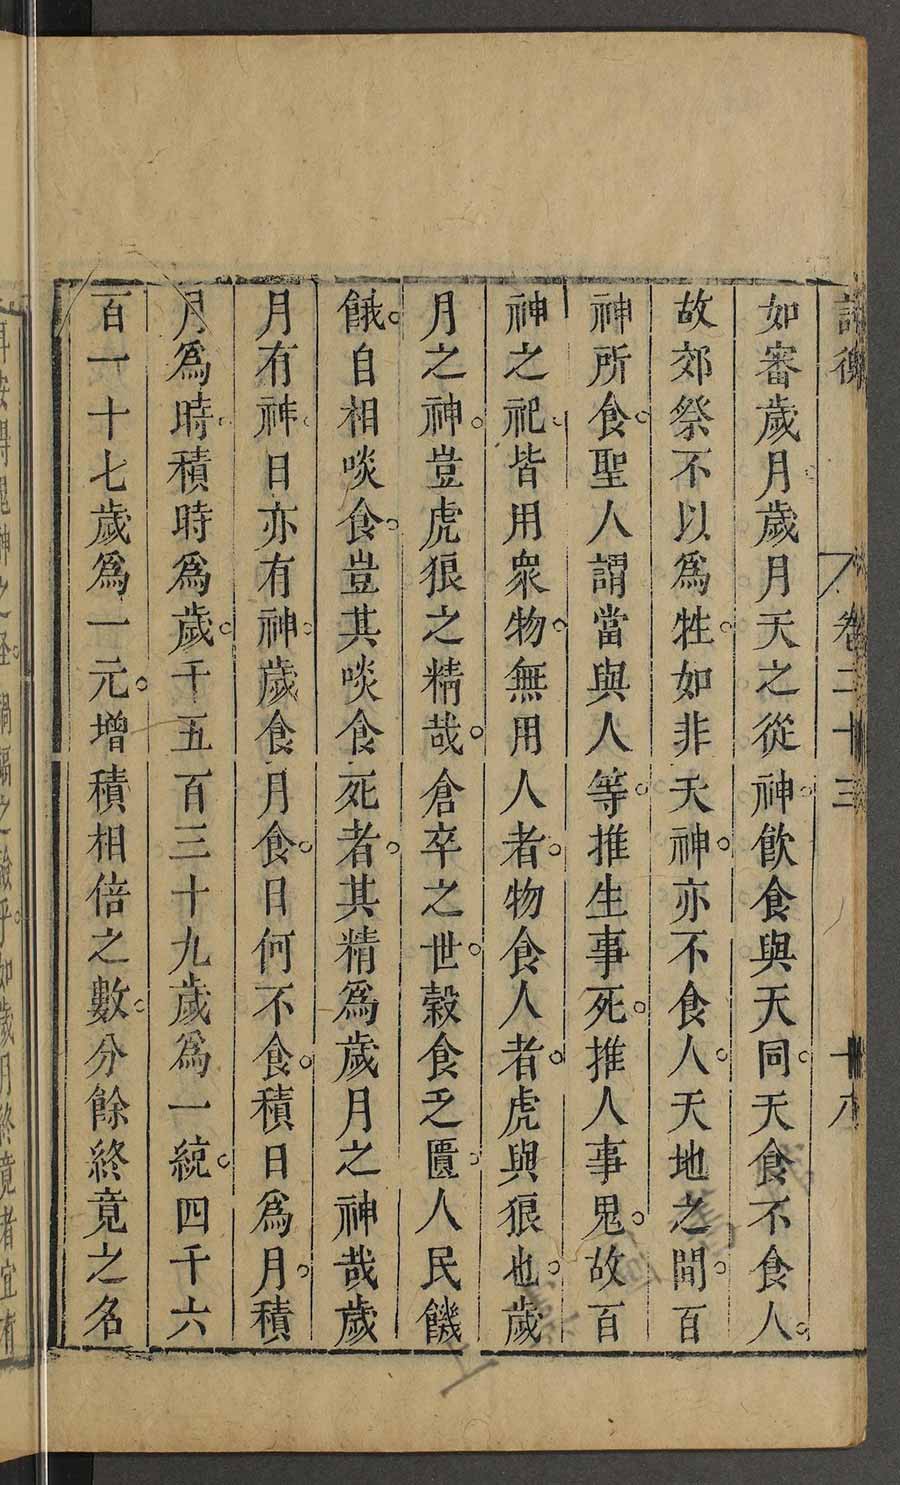 論衡 卷二十三 十八
如審歲月歲月天之從神。飲食與天同。天食不食人。
故郊祭不以爲牲。如非天神。亦不食人。天地之間。百
神所食。聖人謂當與人等。推生事死。推人事鬼。故百
神之祀。皆用衆物。無用人者。物食人者。虎與狼也。歲
月之神。豈虎狼之精哉。倉卒之世。穀食乏匱。人民饑
餓。自相啖食。豈其啖食死者。其精爲歲月之神哉歲
月有神。日亦有神。歲食月食。日何不食。積日爲月。積
月爲時。積時爲歲。千五百三十九歲爲一統。四千六
百一十七歲爲一元。增積相倍之數。分餘終竟之名